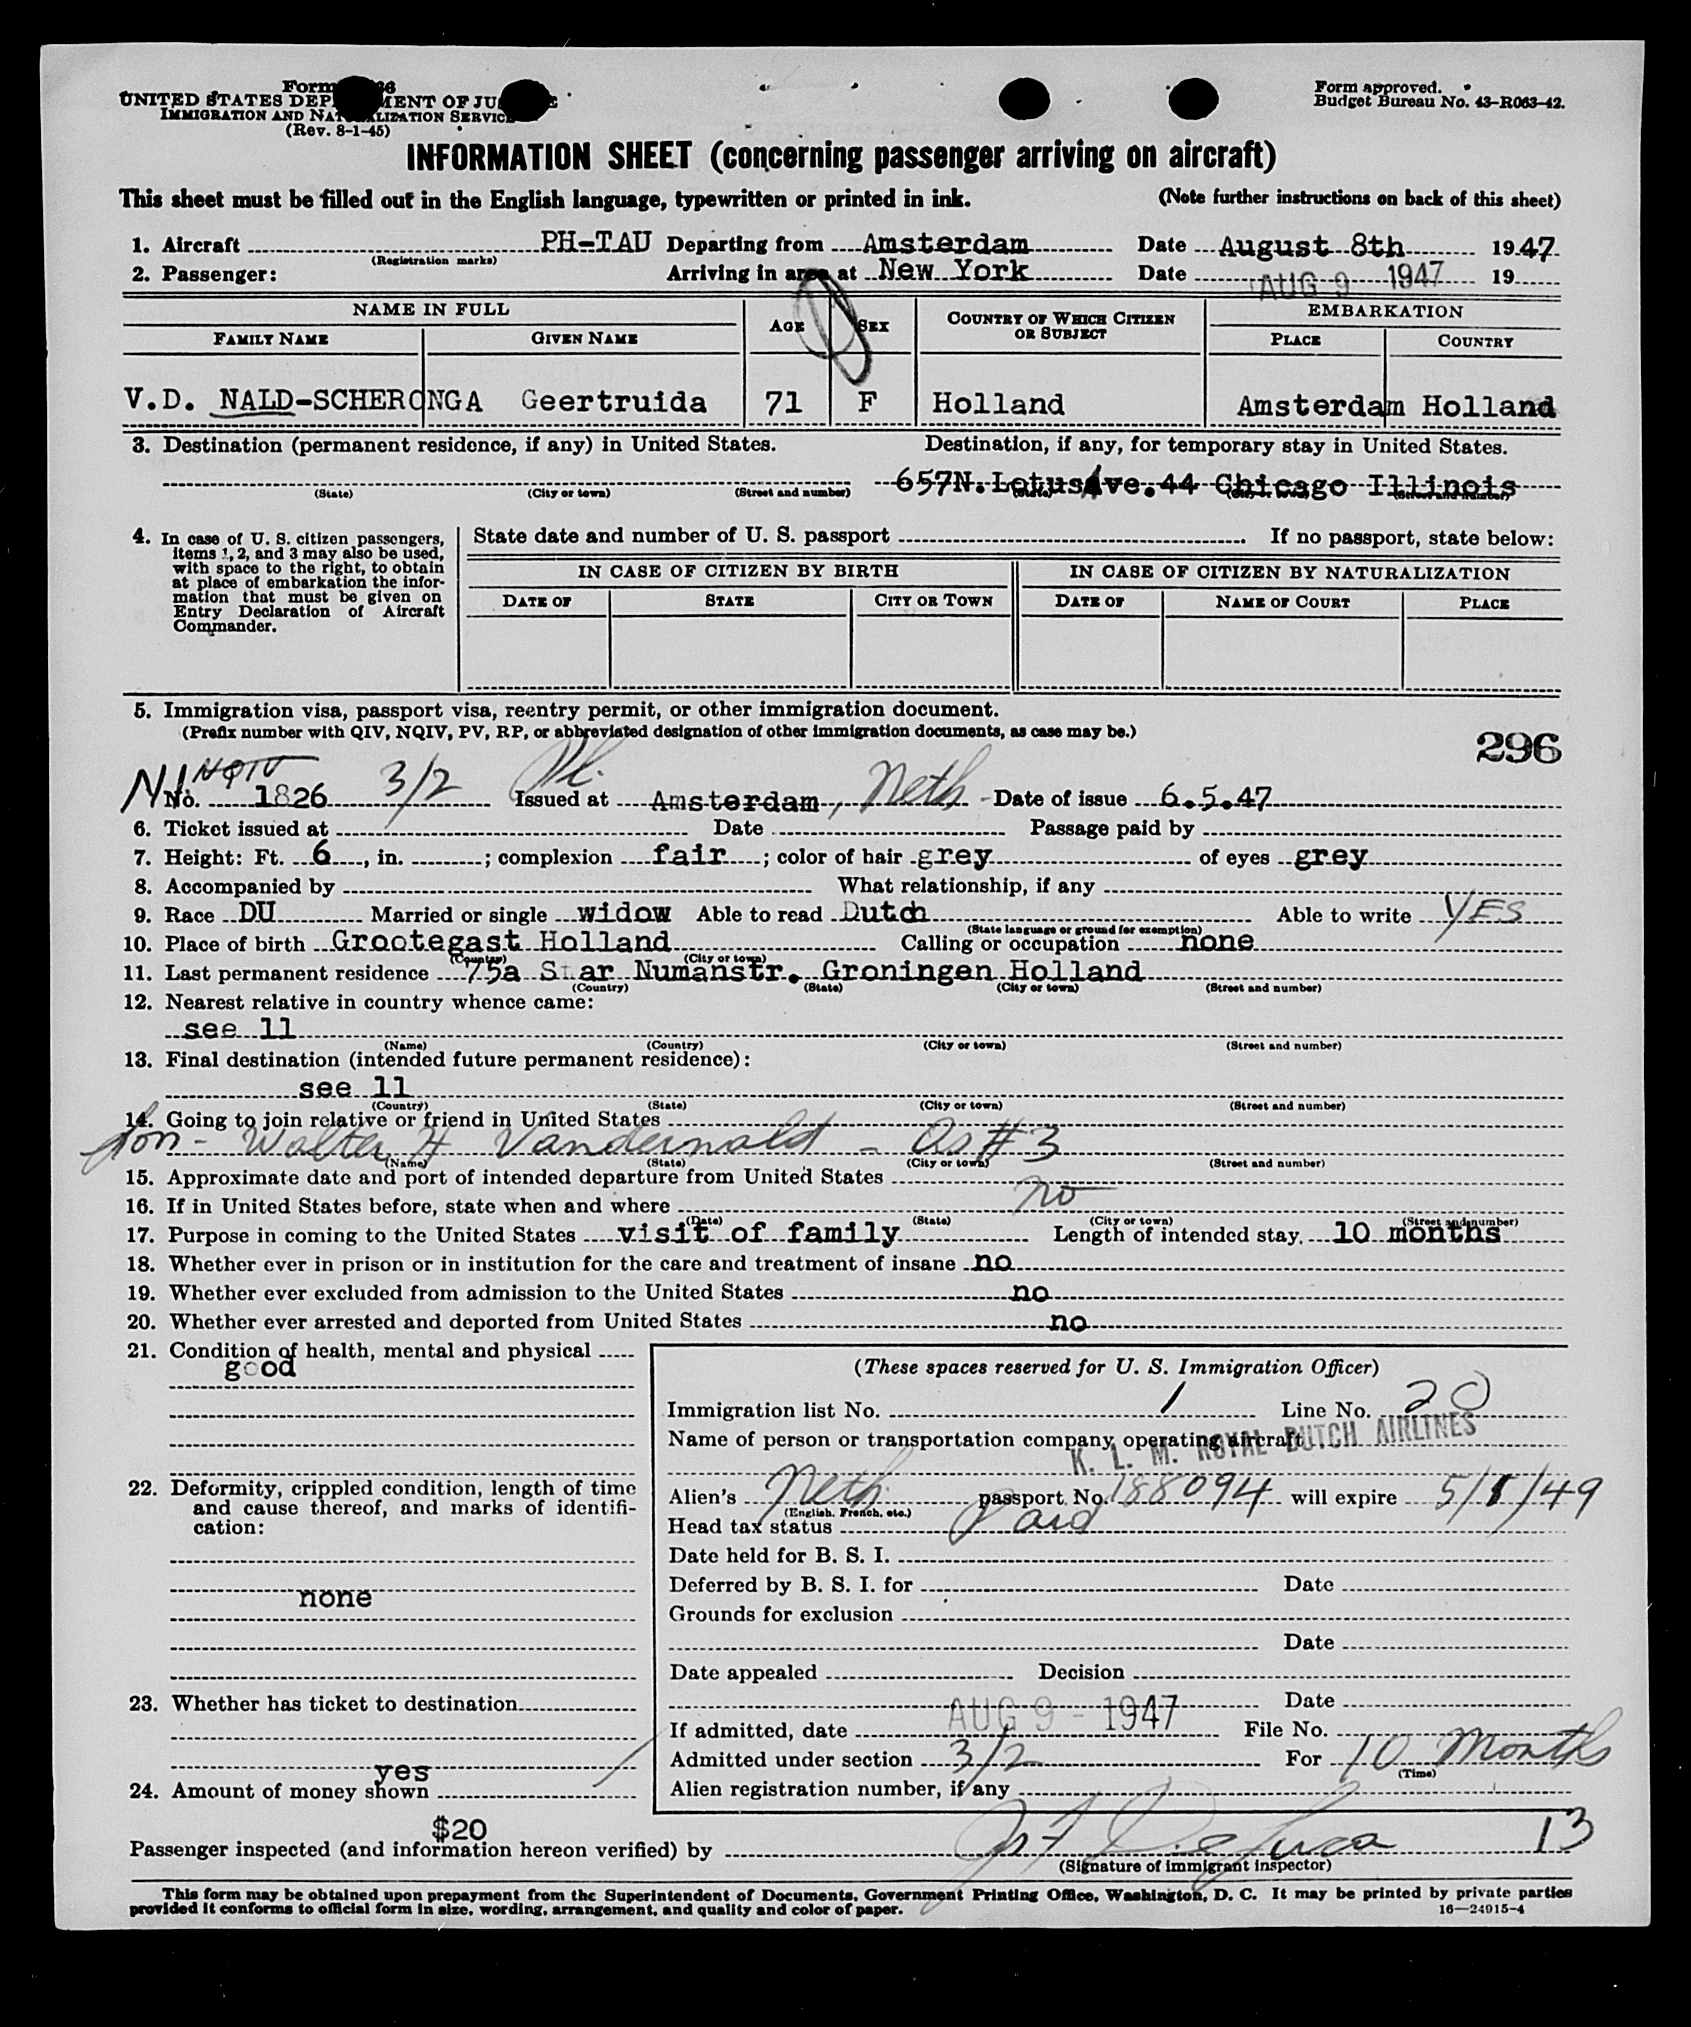 Form
UNITED STATES DEP MENT OF JU
IMMIGRATION AND NATURALIZATION SERVICE
(Rev. 8-1-45)
Form approved.
Budget Bureau No. 43-R063-42.
INFORMATION SHEET (concerning passenger arriving on aircraft)
This sheet must be filled out in the English language, typewritten or printed in ink. (Note further instructions on back of this sheet)
1. Aircraft PH-TAU Departing from Amsterdam Date August 8th 1947
(Registration marks)
2. Passenger: Arriving in area at New York Date AUG 9 1947 19
NAME IN FULL AGE SEX COUNTRY OF WHICH CITIZEN OR SUBJECT EMBARKATION
FAMILY NAME GIVEN NAME PLACE COUNTRY
V.D. NALD-SCHERONGA Geertruida 71 F Holland Amsterdam Holland
3. Destination (permanent residence, if any) in United States. Destination, if any, for temporary stay in United States.
657N. Lotus Ave. 44 Chicago Illinois
(State) (City or town) (Street and number) (State) (City or town) (Street and number)
4. In case of U. S. citizen passengers, items 1, 2, and 3 may also be used, with space to the right, to obtain at place of embarkation the information that must be given on Entry Declaration of Aircraft Commander.
State date and number of U. S. passport If no passport, state below:
IN CASE OF CITIZEN BY BIRTH IN CASE OF CITIZEN BY NATURALIZATION
DATE OF STATE CITY OR TOWN DATE OF NAME OF COURT PLACE
5. Immigration visa, passport visa, reentry permit, or other immigration document.
(Prefix number with QIV, NQIV, PV, RP, or abbreviated designation of other immigration documents, as case may be.)
296
NQIV
No. 1826 3/2 Issued at Amsterdam, Neth Date of issue 6.5.47
6. Ticket issued at Date Passage paid by
7. Height: Ft. 6, in. ; complexion fair; color of hair grey of eyes grey
8. Accompanied by What relationship, if any
9. Race DU Married or single widow Able to read Dutch Able to write YES
(State language or ground for exemption)
10. Place of birth Grootegast Holland Calling or occupation none
(Country) (City or town)
11. Last permanent residence 75a Star Numanstr. Groningen Holland
(Country) (State) (City or town) (Street and number)
12. Nearest relative in country whence came:
see 11
(Name) (Country) (City or town) (Street and number)
13. Final destination (intended future permanent residence):
see 11
(Country) (State) (City or town) (Street and number)
14. Going to join relative or friend in United States
Son - Walter H Vandernald - As #3
(Name) (State) (City or town) (Street and number)
15. Approximate date and port of intended departure from United States
16. If in United States before, state when and where no
(Date) (State) (City or town) (Street and number)
17. Purpose in coming to the United States visit of family Length of intended stay, 10 months
18. Whether ever in prison or in institution for the care and treatment of insane no
19. Whether ever excluded from admission to the United States no
20. Whether ever arrested and deported from United States no
21. Condition of health, mental and physical
good
22. Deformity, crippled condition, length of time and cause thereof, and marks of identification:
none
23. Whether has ticket to destination
yes
24. Amount of money shown
$20
(These spaces reserved for U. S. Immigration Officer)
Immigration list No. 1 Line No. 20
Name of person or transportation company operating aircraft
K. L. M. ROYAL DUTCH AIRLINES
Alien's Neth. passport No. 188094 will expire 5/1/49
(English, French, etc.)
Head tax status Paid
Date held for B. S. I.
Deferred by B. S. I. for Date
Grounds for exclusion
Date
Date appealed Decision
Date
If admitted, date AUG 9 - 1947 File No.
Admitted under section 3/2 For 10 Months
(Time)
Alien registration number, if any
Passenger inspected (and information hereon verified) by 13
(Signature of immigrant inspector)
This form may be obtained upon prepayment from the Superintendent of Documents, Government Printing Office, Washington, D. C. It may be printed by private parties
provided it conforms to official form in size, wording, arrangement, and quality and color of paper.
16—24915-4